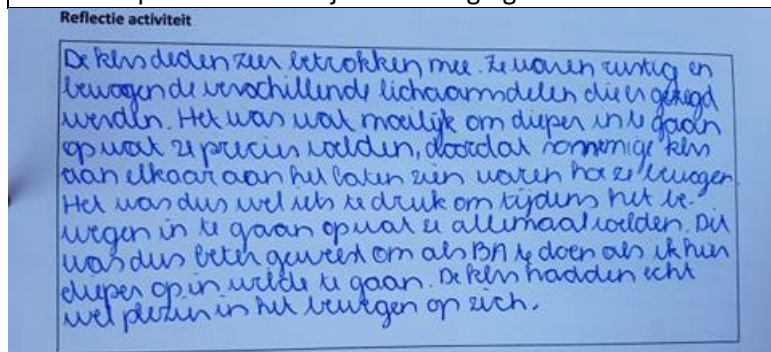 Reflectie activiteit
De klns deden zeer betrokken mee. Ze waren rustig en
bewogen de verschillende lichaamsdelen die er gezegd
werden. Het was wat moeilijk om dieper in te gaan
op wat ze precies voelden, doordat sommige klns
aan elkaar aan het laten zien waren hoe ze bewogen.
Het was dus wel iets te druk om tijdens het be-
wegen in te gaan op wat ze allemaal voelden. Dit
was dus beter geweest om als BA te doen als ik hier
dieper op in wilde te gaan. De klns hadden echt
wel plezier in het bewegen op zich.